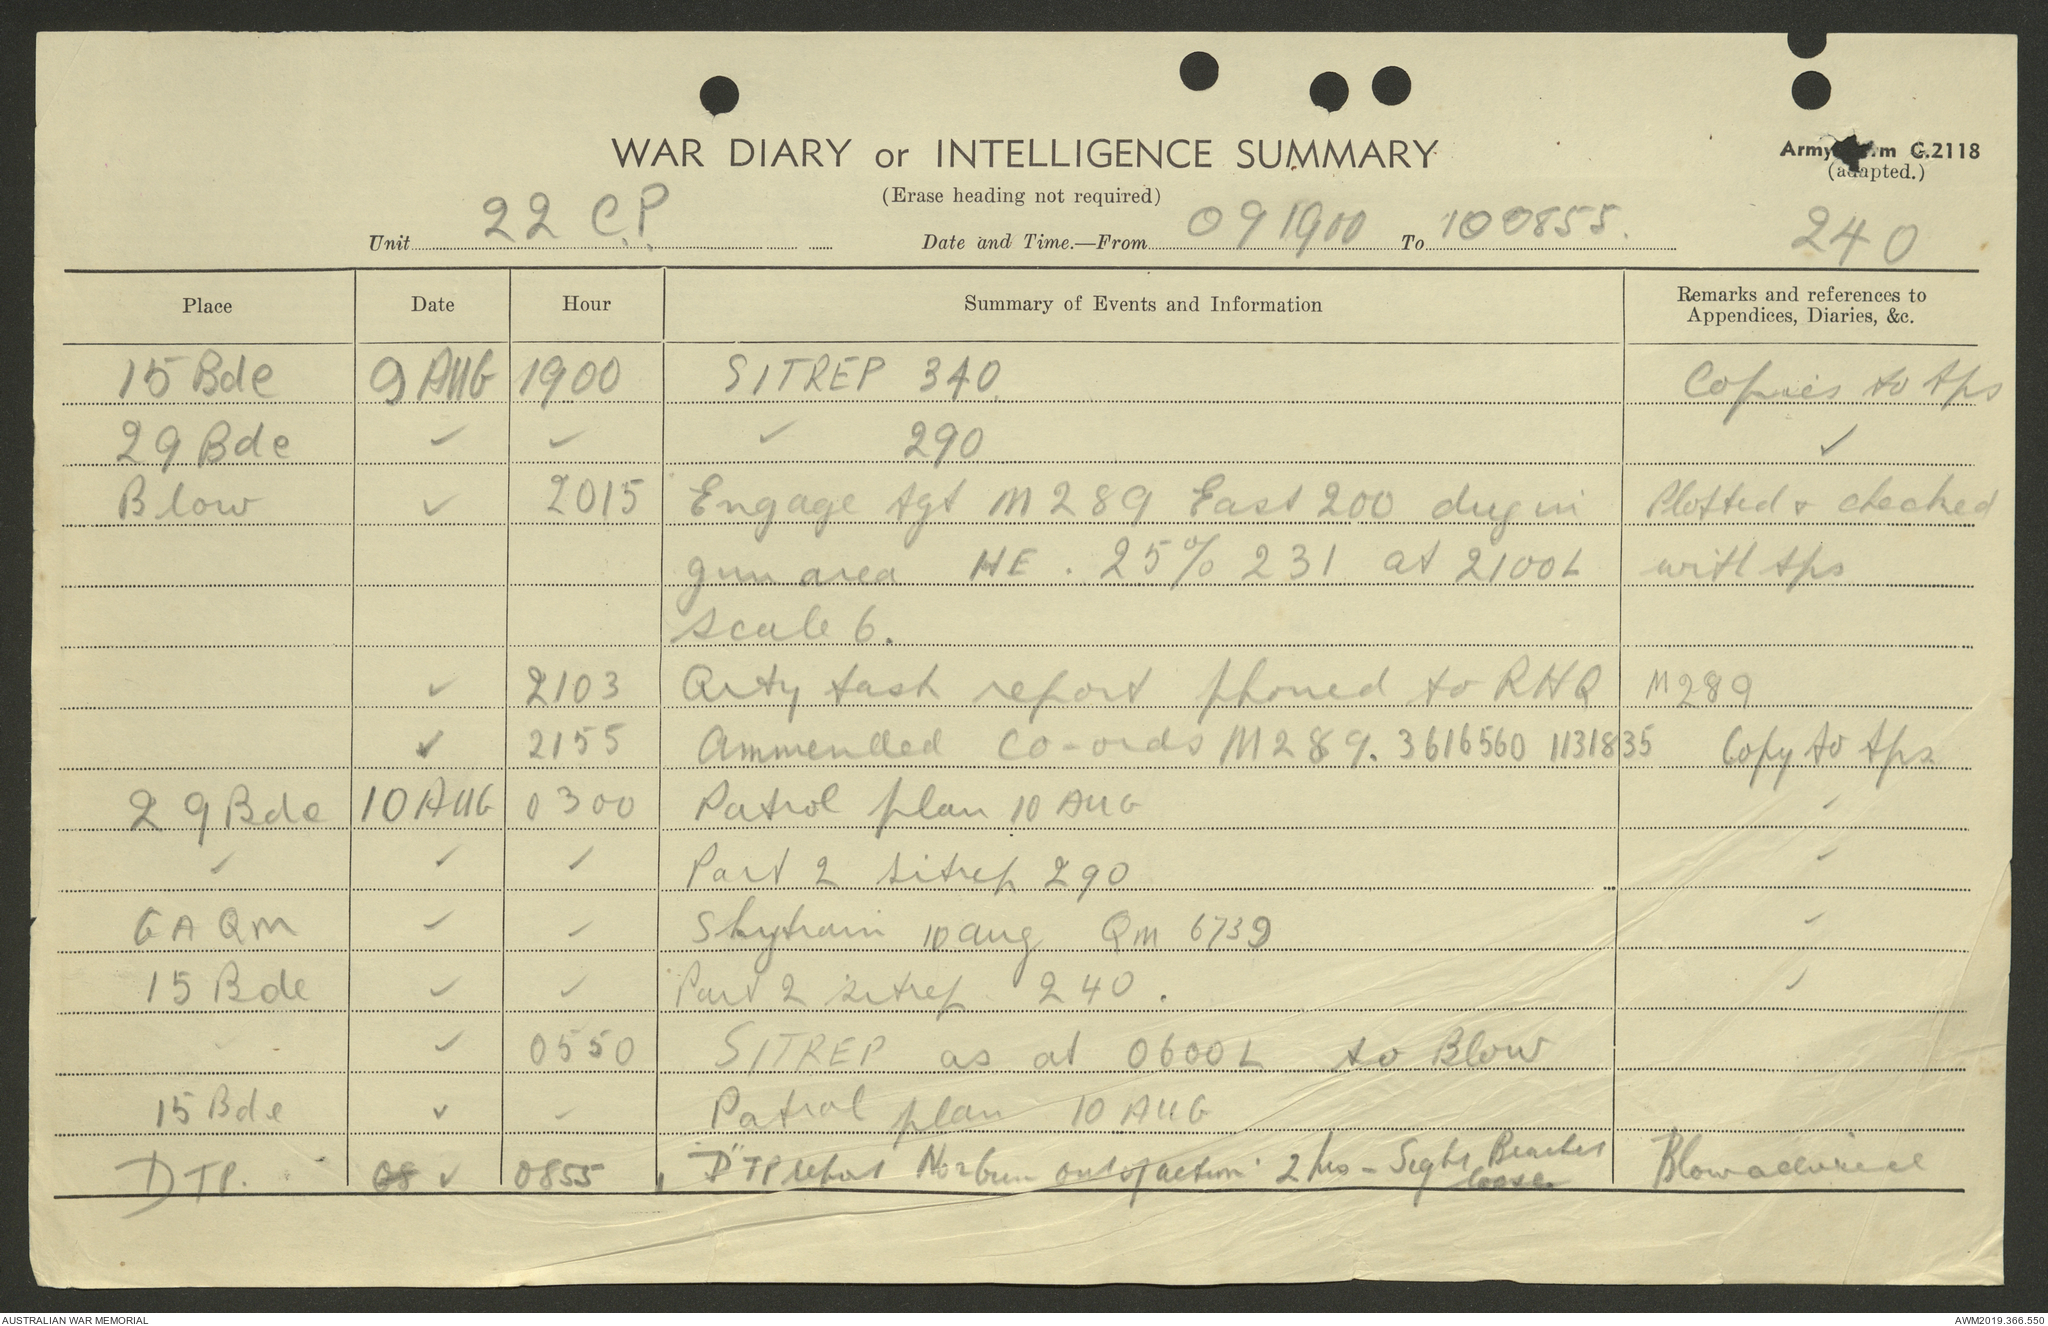 WAR DIARY or INTELLIGENCE SUMMARY
Army Form C.2118
(Erase heading not required)
(adapted.)
Unit 22 C.P. Date and Time.—From 091900 To 100855.
240
Place Date Hour Summary of Events and Information Remarks and references to Appendices, Diaries, &c.
15 Bde 9 AUG 1900 SITREP 340. Copies to tps
29 Bde ✓ ✓ ✓ 290 ✓
Blow ✓ 2015 Engage tgt M289 East 200 dug in Plotted & checked
gun area HE. 25% 231 at 2100L with tps
scale 6.
✓ 2103 Arty task report phoned to RHQ M289
✓ 2155 Ammended Co-ords M289. 3616560 1131835 Copy to tps
29 Bde 10 AUG 0300 Patrol plan 10 AUG ✓
✓ ✓ ✓ Part 2 sitrep 290 ✓
GAQM ✓ ✓ Skytrain 10 Aug QM 6739 ✓
15 Bde ✓ ✓ Part 2 sitrep 240. ✓
✓ 0550 SITREP as at 0600L to Blow
15 Bde ✓ ✓ Patrol plan 10 AUG
DTP. 08 ✓ 0855 "D" TP report No2 gun out of action 2 hrs - Sight Bracket loose Blow advised
AUSTRALIAN WAR MEMORIAL
AWM2019.366.550